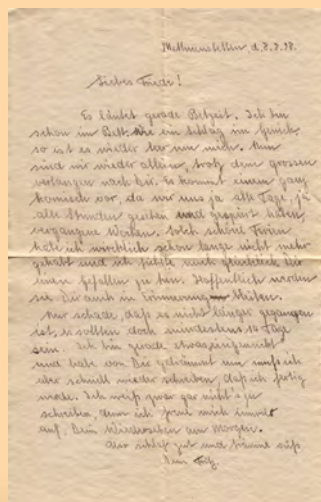 Mettmenstetten, d. 8.8.38.
Liebes Friedi!
Es läutet gerade Betzeit. Ich bin
schon im Bett. Wie ein Schlag im Genick
so ist es wieder leer um mich. Nun
sind wir wieder allein, trotz dem grossen
verlangen nach Dir. Es kommt einem ganz
komisch vor, da wir uns ja alle Tage, ja
alle Stunden gesehen und gespürt haben
vergangene Wochen. Solch schöne Ferien
habe ich wirklich schon lange nicht mehr
gehabt und ich fühlte mich glücklich Dir
einen gefallen zu tun. Hoffentlich werden
sie Dir auch in Erinnerung bleiben.
Nur schade, daß es nicht länger gegangen
ist, es sollten doch mindestens 10 Tage
sein. Ich bin gerade etwas eingenickt
und habe von Dir geträumt nun muß ich
aber schnell wieder schreiben, daß ich fertig
werde. Ich weiß zwar gar nicht
schreiben, denn ich freue mich immer
auf Dein Wiedersehen am Morgen.
Also schlaf gut und träume süß
Dein Fritz.